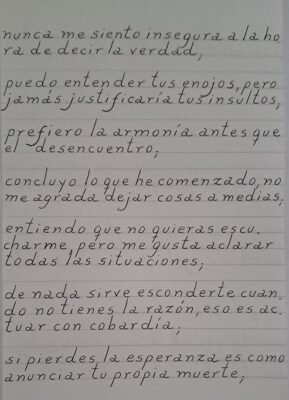 nunca me siento insegura a la ho
ra de decir la verdad;
puedo entender tus enojos, pero
jamás justificaría tus insultos;
prefiero la armonía antes que
el desencuentro;
concluyo lo que he comenzado, no
me agrada dejar cosas a medias;
entiendo que no quieras escu-
charme, pero me gusta aclarar
todas las situaciones;
de nada sirve esconderte cuan-
do no tienes la razón, eso es ac-
tuar con cobardía;
si pierdes, la esperanza es como
anunciar tu propia muerte;